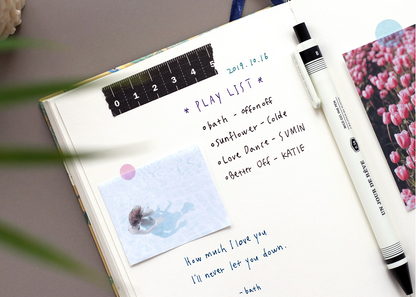 0 1 2 3 4 5
2019.10.16
* PLAY LIST *
bath - offonoff
sunflower - Colde
Love Dance - SUMIN
Better Off - KATIE
How much I love you
I'll never let you down.
- bath
UN JOUR DE RÊVE